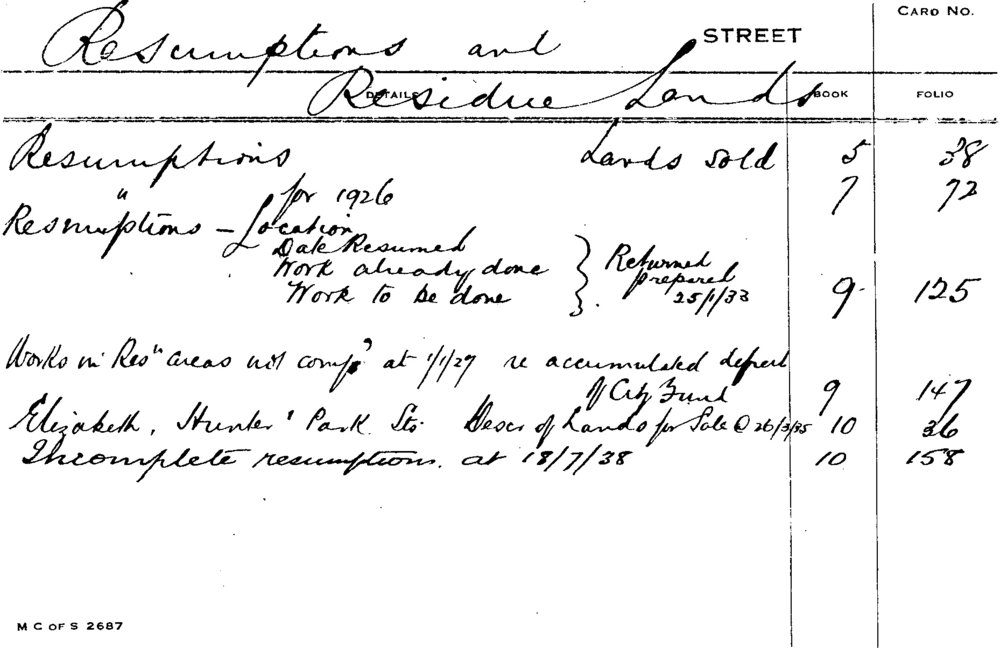 CARD NO.
Resumptions and STREET
Residue Lands
DETAILS BOOK FOLIO
Resumptions Lands sold 5 38
" for 1926 7 72
Resumptions – Location
Date Resumed
Work already done } Returned
Work to be done prepared 25/1/33 9 125
Works in Resns areas not comp. at 1/1/29 re accumulated
of City Fund 9 147
Elizabeth, Hunter & Park Sts. Descr of Lands for Sale @ 26/3/35 10 36
Incomplete resumptions. at 18/7/38 10 158
M C OF S 2687